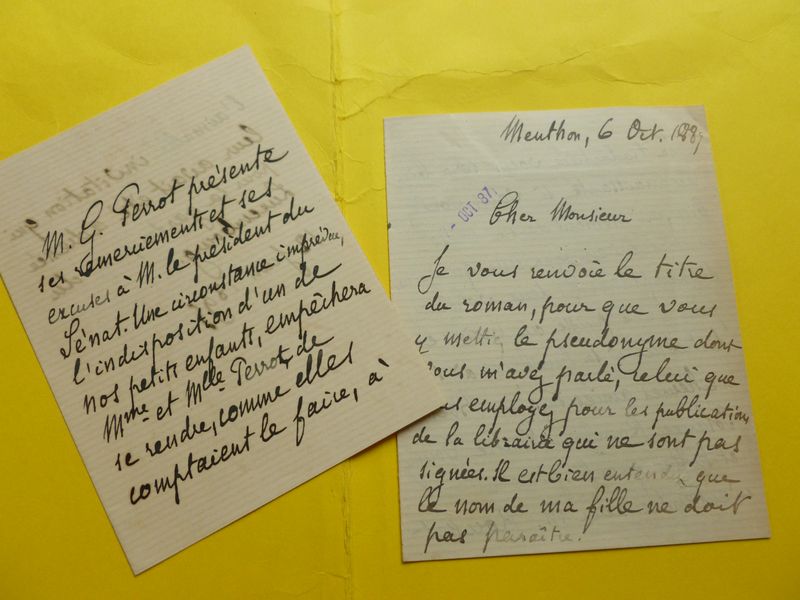 M. G. Perrot présente
ses remerciements et ses
excuses à M. le président du
Sénat. Une circonstance imprévue,
l'indisposition d'un de
nos petits enfants, empêchera
Mme et Mlle Perrot, de
se rendre, comme elles
comptaient le faire, à
Menthon, 6 Oct. 1887
- OCT 87
Cher Monsieur
Je vous renvoie le titre
du roman, pour que vous
y mettiez le pseudonyme dont
vous m'avez parlé, celui que
employez pour les publications
de la librairie qui ne sont pas
signées. Il est bien entendu que
le nom de ma fille ne doit
pas paraître.